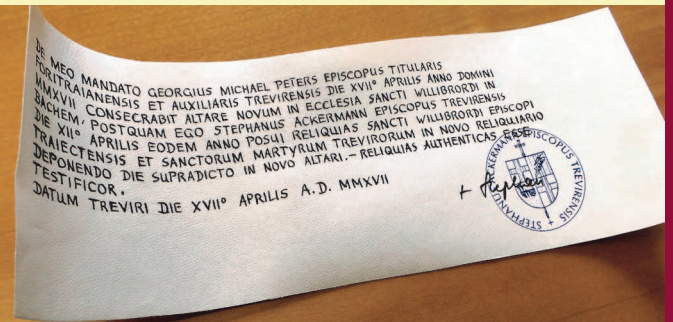 DE MEO MANDATO GEORGIUS MICHAEL PETERS EPISCOPUS TITULARIS
FORITRAIANENSIS ET AUXILIARIS TREVIRENSIS DIE XVII° APRILIS ANNO DOMINI
MMXVII CONSECRABIT ALTARE NOVUM IN ECCLESIA SANCTI WILLIBRORDI IN
BACHEM, POSTQUAM EGO STEPHANUS ACKERMANN EPISCOPUS TREVIRENSIS
DIE XII° APRILIS EODEM ANNO POSUI RELIQUIAS SANCTI WILLIBRORDI EPISCOPI
TRAIECTENSIS ET SANCTORUM MARTYRUM TREVIRORUM IN NOVO RELIQUIARIO
DEPONENDO DIE SUPRADICTO IN NOVO ALTARI.– RELIQUIAS AUTHENTICAS ESSE
TESTIFICOR.
DATUM TREVIRI DIE XVII° APRILIS A.D. MMXVII
+ Stephan
STEPHANUS ACKERMANN EPISCOPUS TREVIRENSIS +